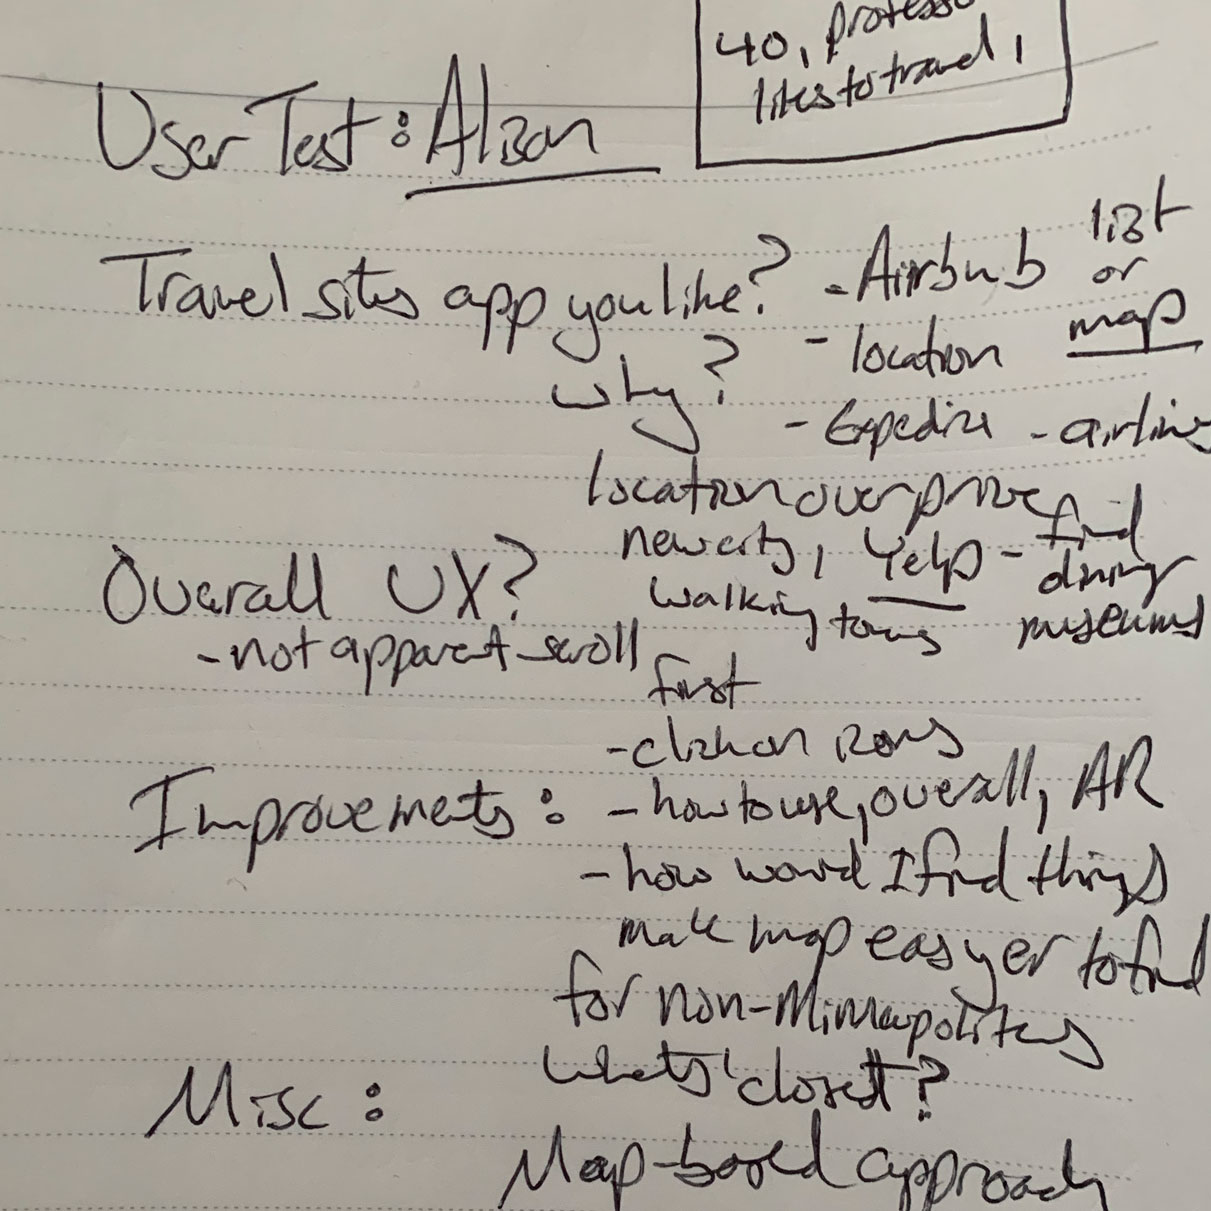 40, profess
likes to travel,
User Test: Alison
Travel sites app you like? - Airbnb list
or
map
- location
why?
- Expedia - airlines
location over price
new city, Yelp - find
dining
walking tours museums
Overall UX?
- not apparent scroll
first
- click on icons
Improvements: - how to use, overall, AR
- how would I find things
make map easyer to find
for non-Minneapolites
whats' closest?
Misc:
Map-based approach